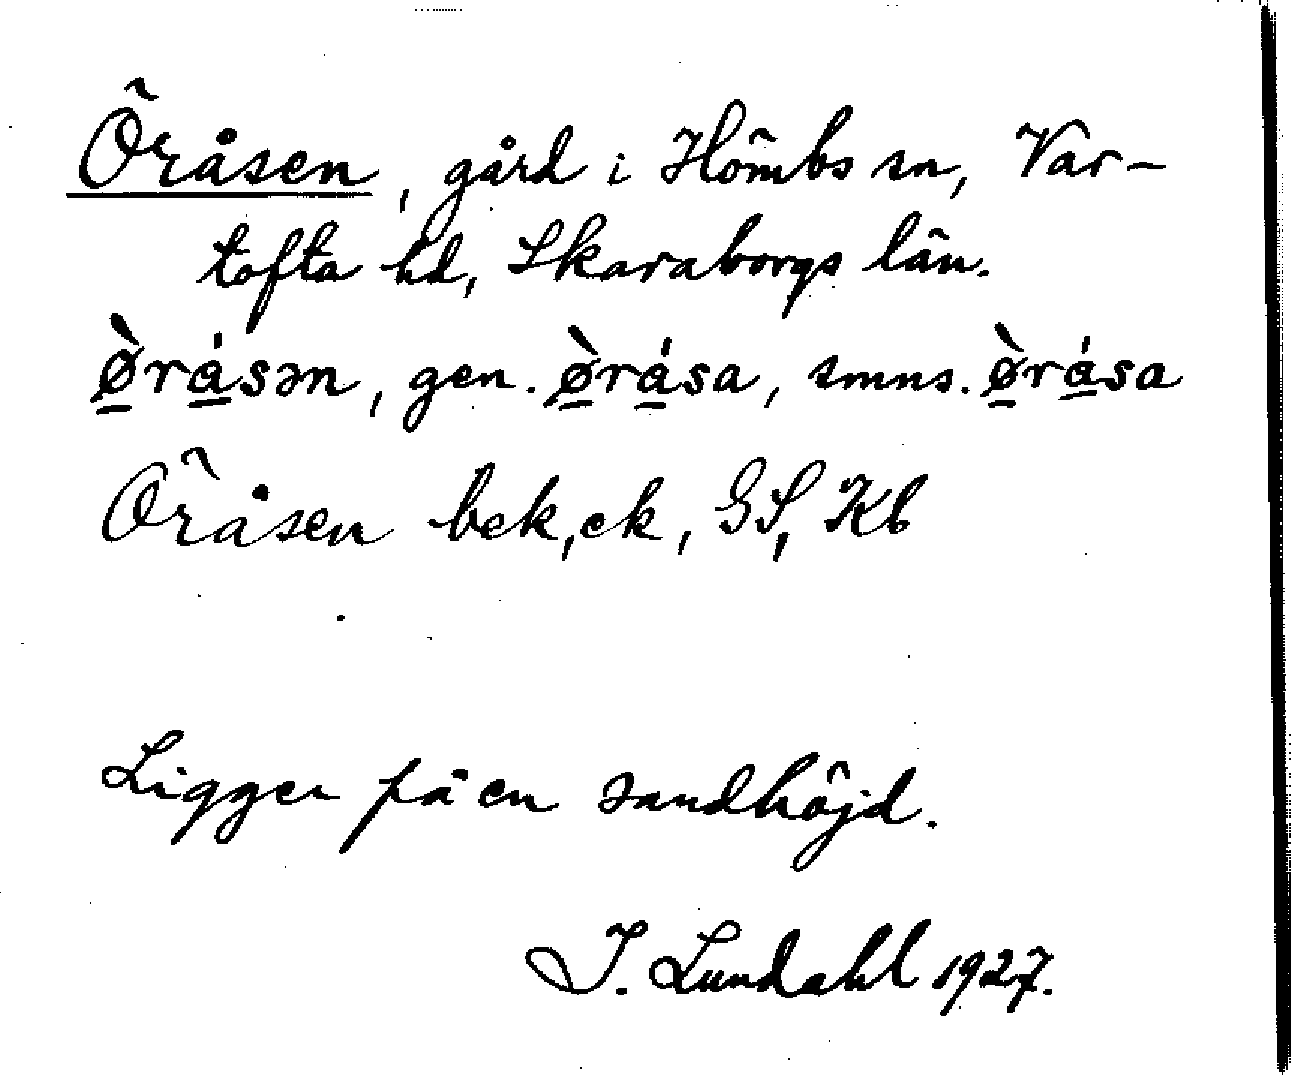 Öråsen, gård i Hömbs sn, Var-
tofta hd, Skaraborgs län.
ø̱̀ra̱̍sən, gen. ø̱̀ra̱̍sa, smns. ø̱̀ra̱̍sa
Öråsen bek, ek, GS, Kb
Ligger på en sandhöjd.
I. Lundahl 1927.